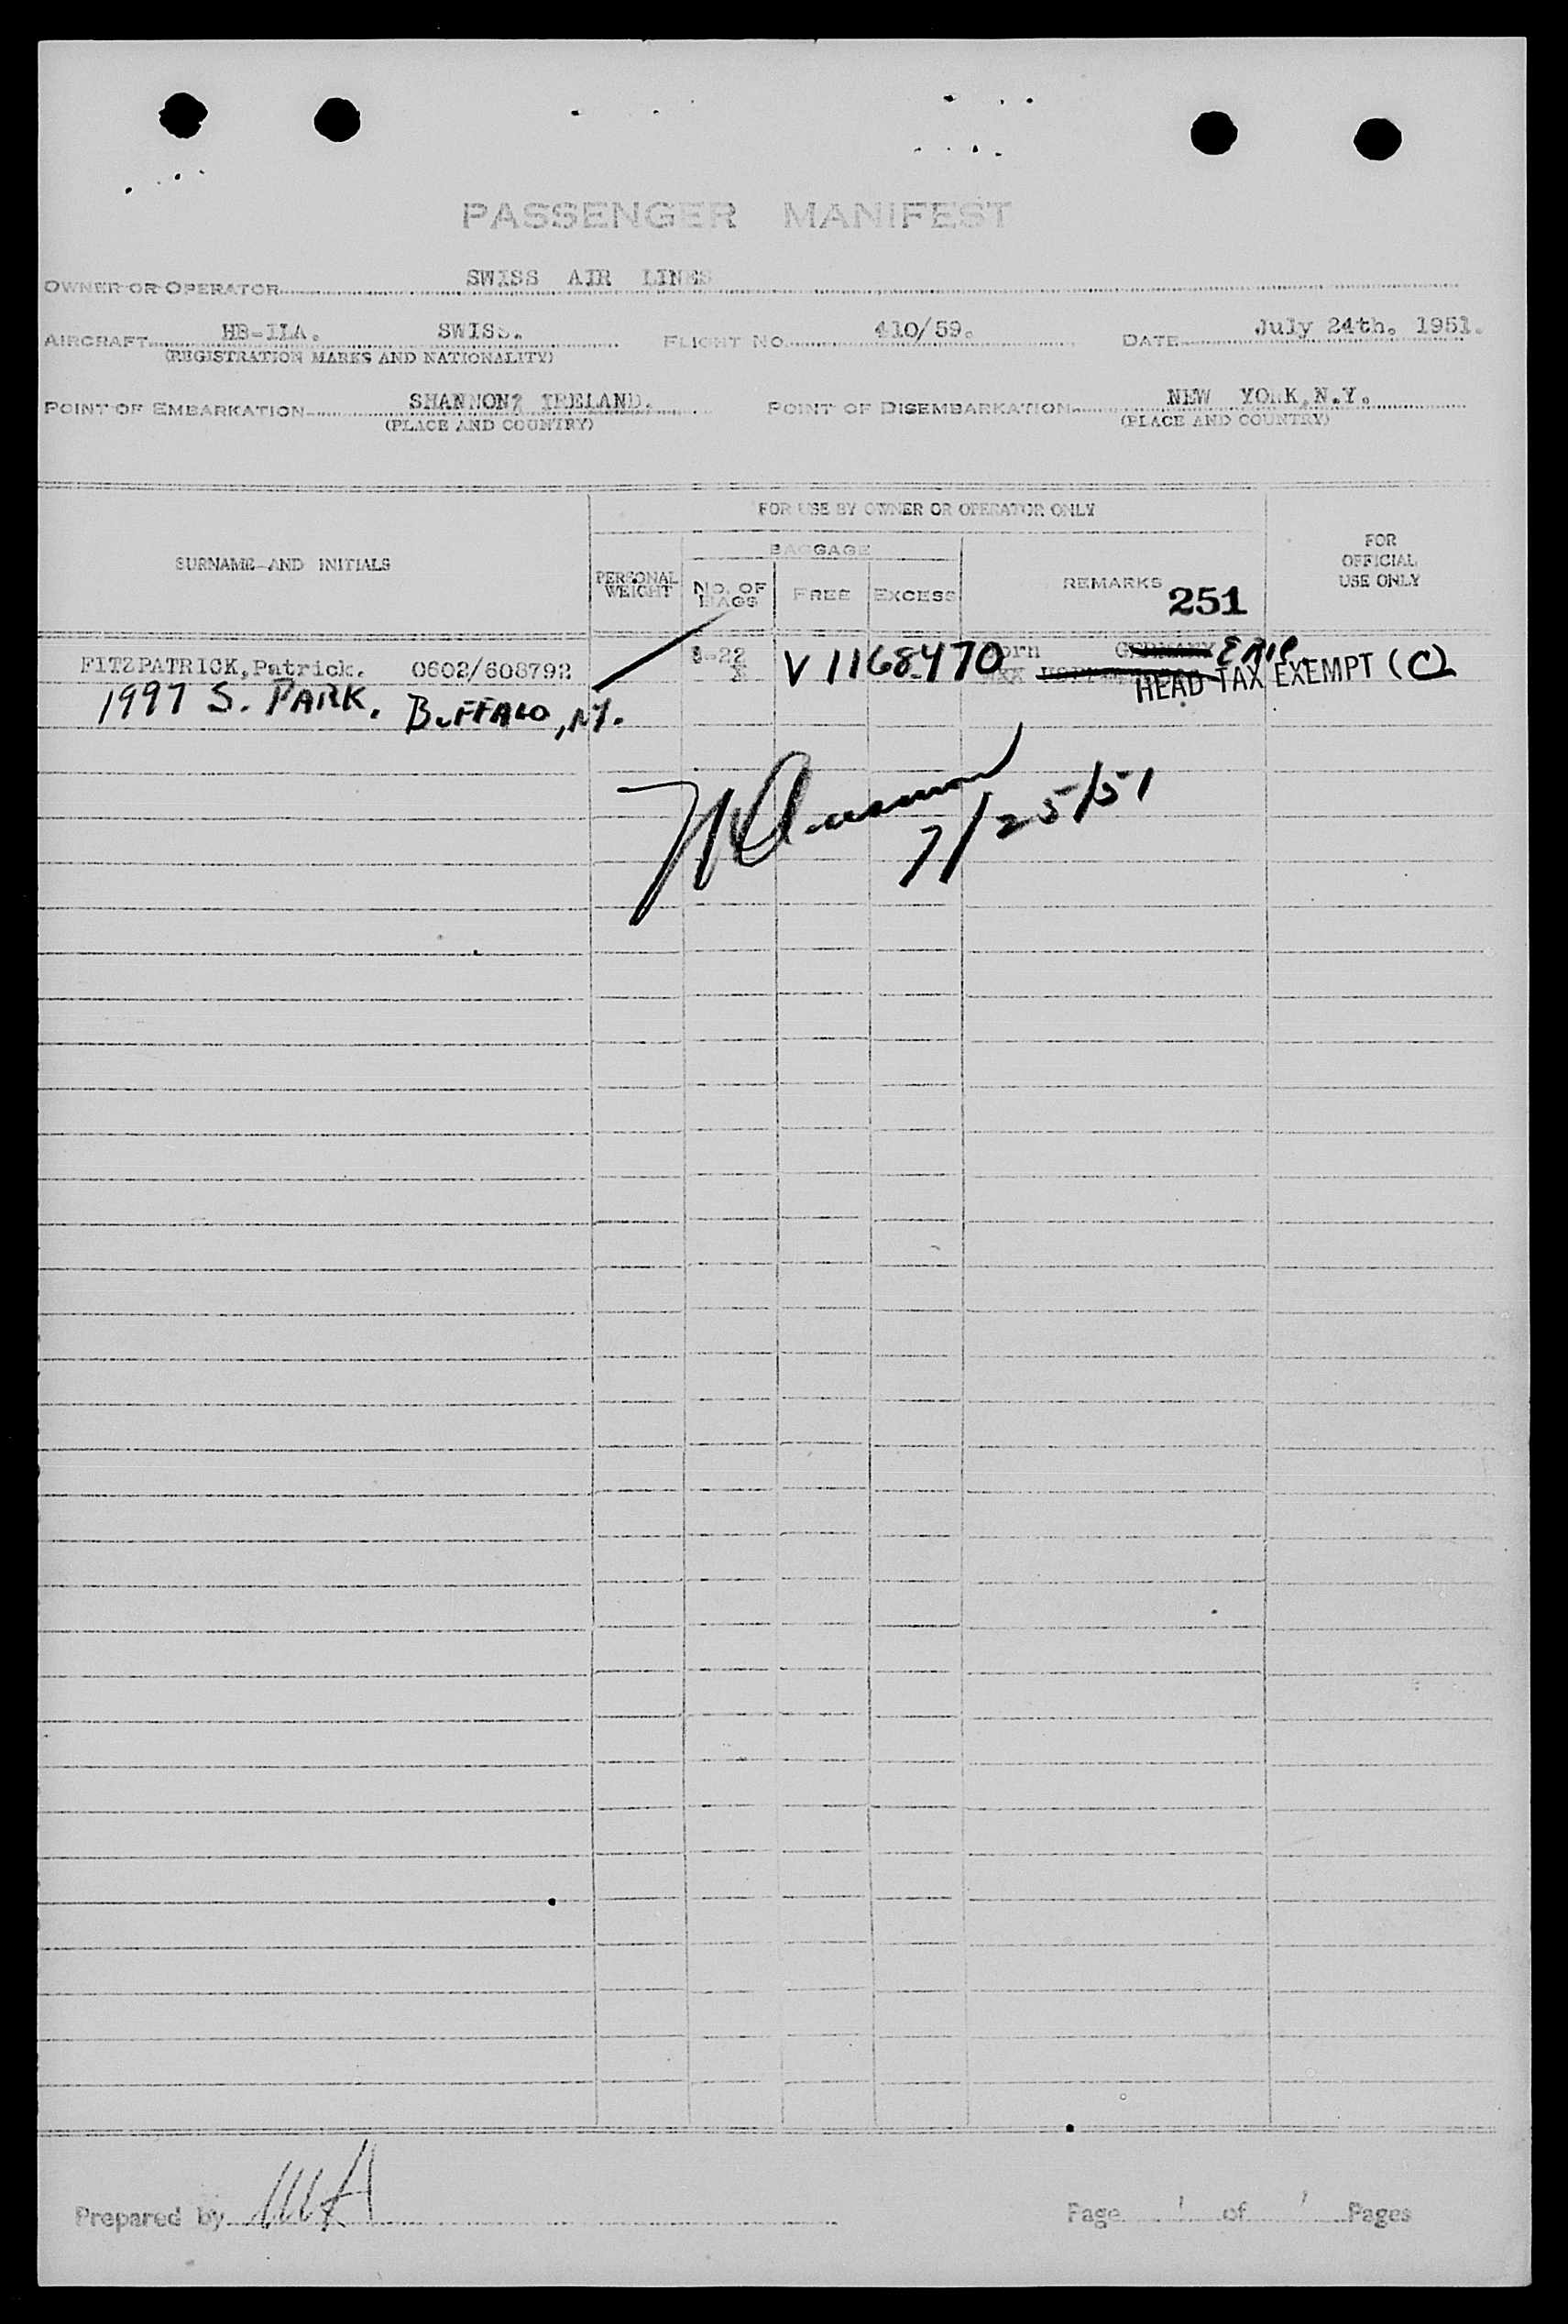 PASSENGER MANIFEST
OWNER OR OPERATOR SWISS AIR LINES
AIRCRAFT HB-ILA. SWISS. FLIGHT NO. 410/59. DATE July 24th. 1951.
(REGISTRATION MARKS AND NATIONALITY)
POINT OF EMBARKATION SHANNON? IRELAND. POINT OF DISEMBARKATION NEW YORK,N.Y.
(PLACE AND COUNTRY) (PLACE AND COUNTRY)
FOR USE BY OWNER OR OPERATOR ONLY
SURNAME AND INITIALS
BAGGAGE
FOR OFFICIAL USE ONLY
PERSONAL WEIGHT
NO. OF BAGS
FREE
EXCESS
REMARKS
251
FITZPATRICK,Patrick. 0602/608792 V1168470 GERMANY
HEAD TAX EXEMPT (C)
1997 S. PARK. BUFFALO, NY.
7/25/51
Prepared by Page 1 of 1 Pages